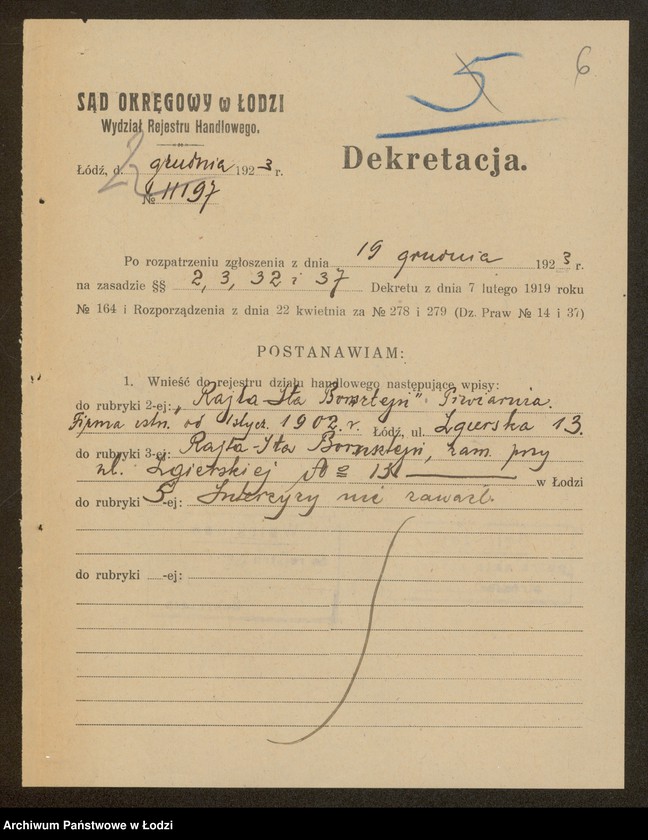 5
6
SĄD OKRĘGOWY w ŁODZI
Wydział Rejestru Handlowego.
Łódź, d. grudnia 1923 r.
№ 11197
Dekretacja.
Po rozpatrzeniu zgłoszenia z dnia 19 grudnia 1923 r.
na zasadzie §§ 2, 3, 32 i 37 Dekretu z dnia 7 lutego 1919 roku
№ 164 i Rozporządzenia z dnia 22 kwietnia za № 278 i 279 (Dz. Praw № 14 i 37)
POSTANAWIAM:
1. Wnieść do rejestru działu handlowego następujące wpisy:
do rubryki 2-ej: „Rajta-Ita Bornsztejn" Piwiarnia.
Firma istn. od 1 stycz. 1902 r. Łódź, ul. Zgierska 13.
do rubryki 3-ej: Rajta-Ita Bornsztejn, zam. przy
ul. Zgierskiej № 13 w Łodzi
do rubryki 5-ej: Intercyzy nie zawarł.
do rubryki -ej:
Archiwum Państwowe w Łodzi